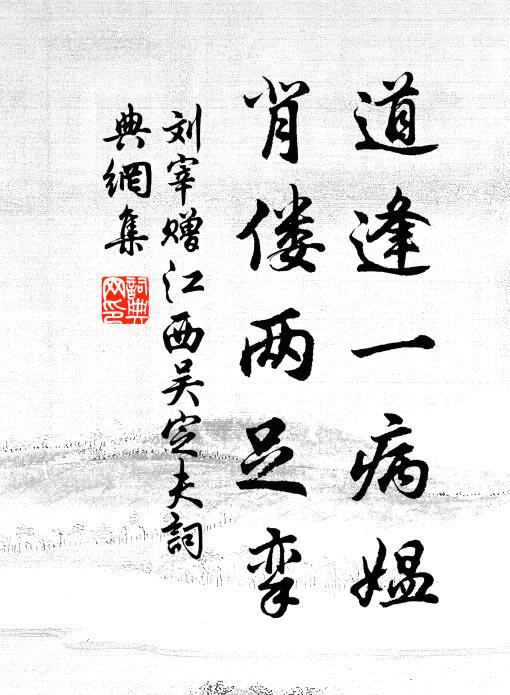 道逢一病媪
背偻两足挛
刘宰赠江西吴定夫詞
典網集
詞典
网印